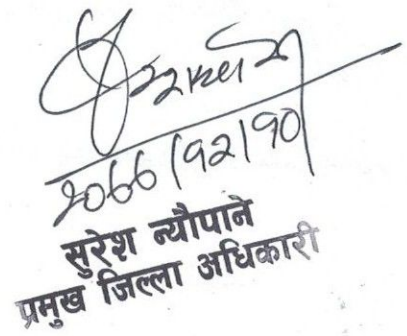 २०६६/१२/१०
सुरेश न्यौपाने
प्रमुख जिल्ला अधिकारी